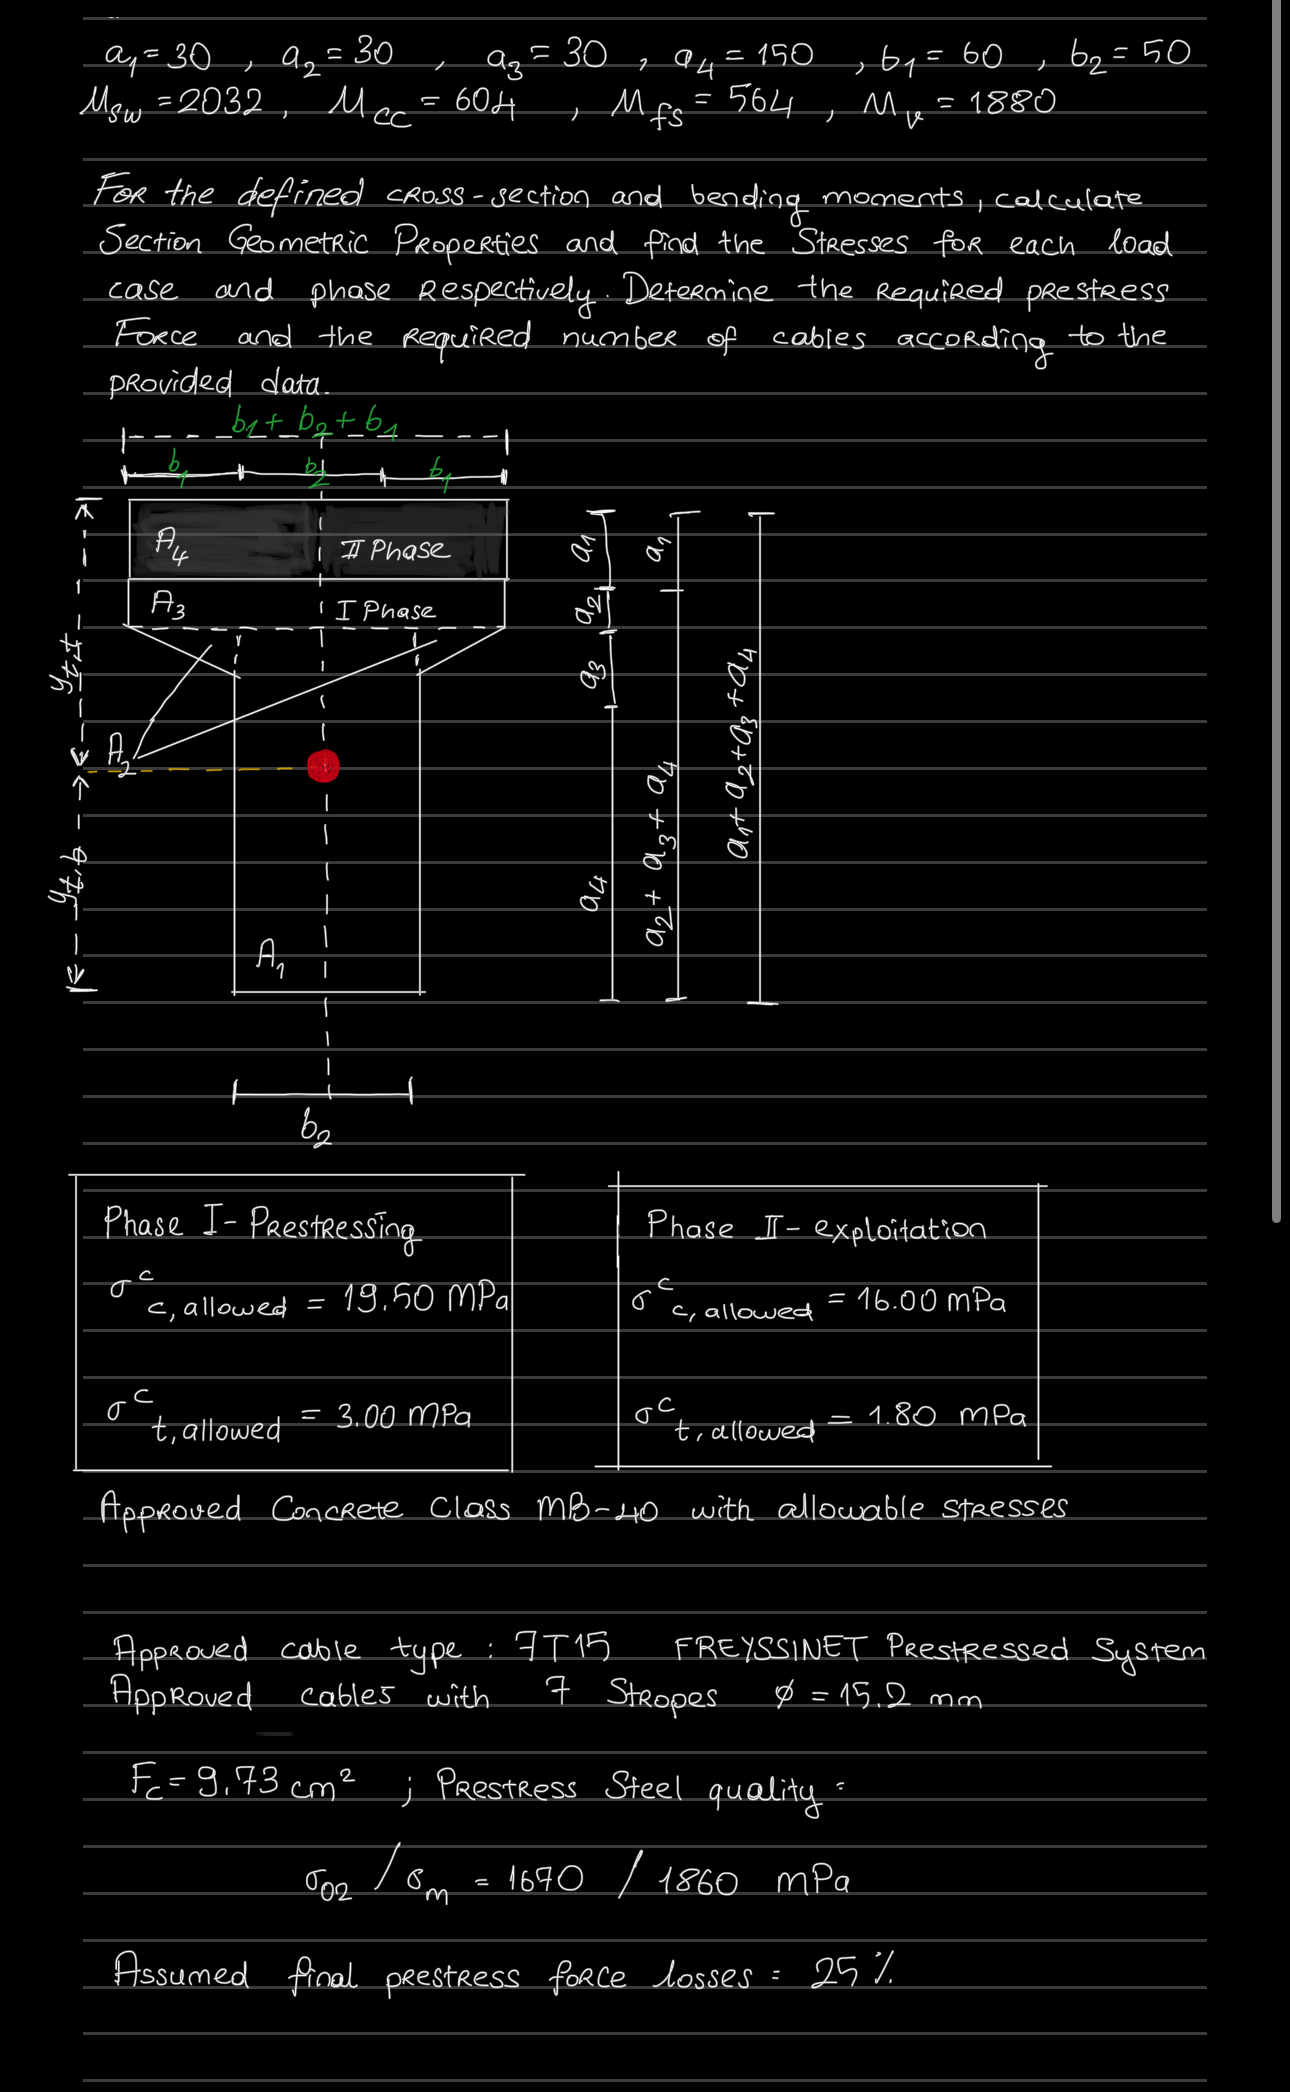 a₁=30 , a₂=30 , a₃=30 , a₄=150 , b₁=60 , b₂=50
M_sw=2032 , M_cc=604 , M_fs=564 , M_v=1880
For the defined cross-section and bending moments, calculate
Section Geometric Properties and find the Stresses for each load
case and phase respectively. Determine the required prestress
Force and the required number of cables according to the
provided data.
b₁+b₂+b₁
b₁ b₂ b₁
A₄ II Phase
A₃ I Phase
A₂
A₁
y_t,t
y_t,b
a₁
a₂
a₃
a₄
a₁
a₂+a₃+a₄
a₁+a₂+a₃+a₄
b₂
Phase I - Prestressing
σ^c_c,allowed = 19.50 MPa
σ^c_t,allowed = 3.00 MPa
Phase II - exploitation
σ^c_c,allowed = 16.00 mPa
σ^c_t,allowed = 1.80 mPa
Approved Concrete Class MB-40 with allowable stresses
Approved cable type : 7T15 FREYSSINET Prestressed System
Approved cables with 7 Stropes ø = 15.2 mm
F_c = 9.73 cm² ; Prestress Steel quality =
σ₀₂ / σ_m = 1670 / 1860 mPa
Assumed final prestress force losses = 25%